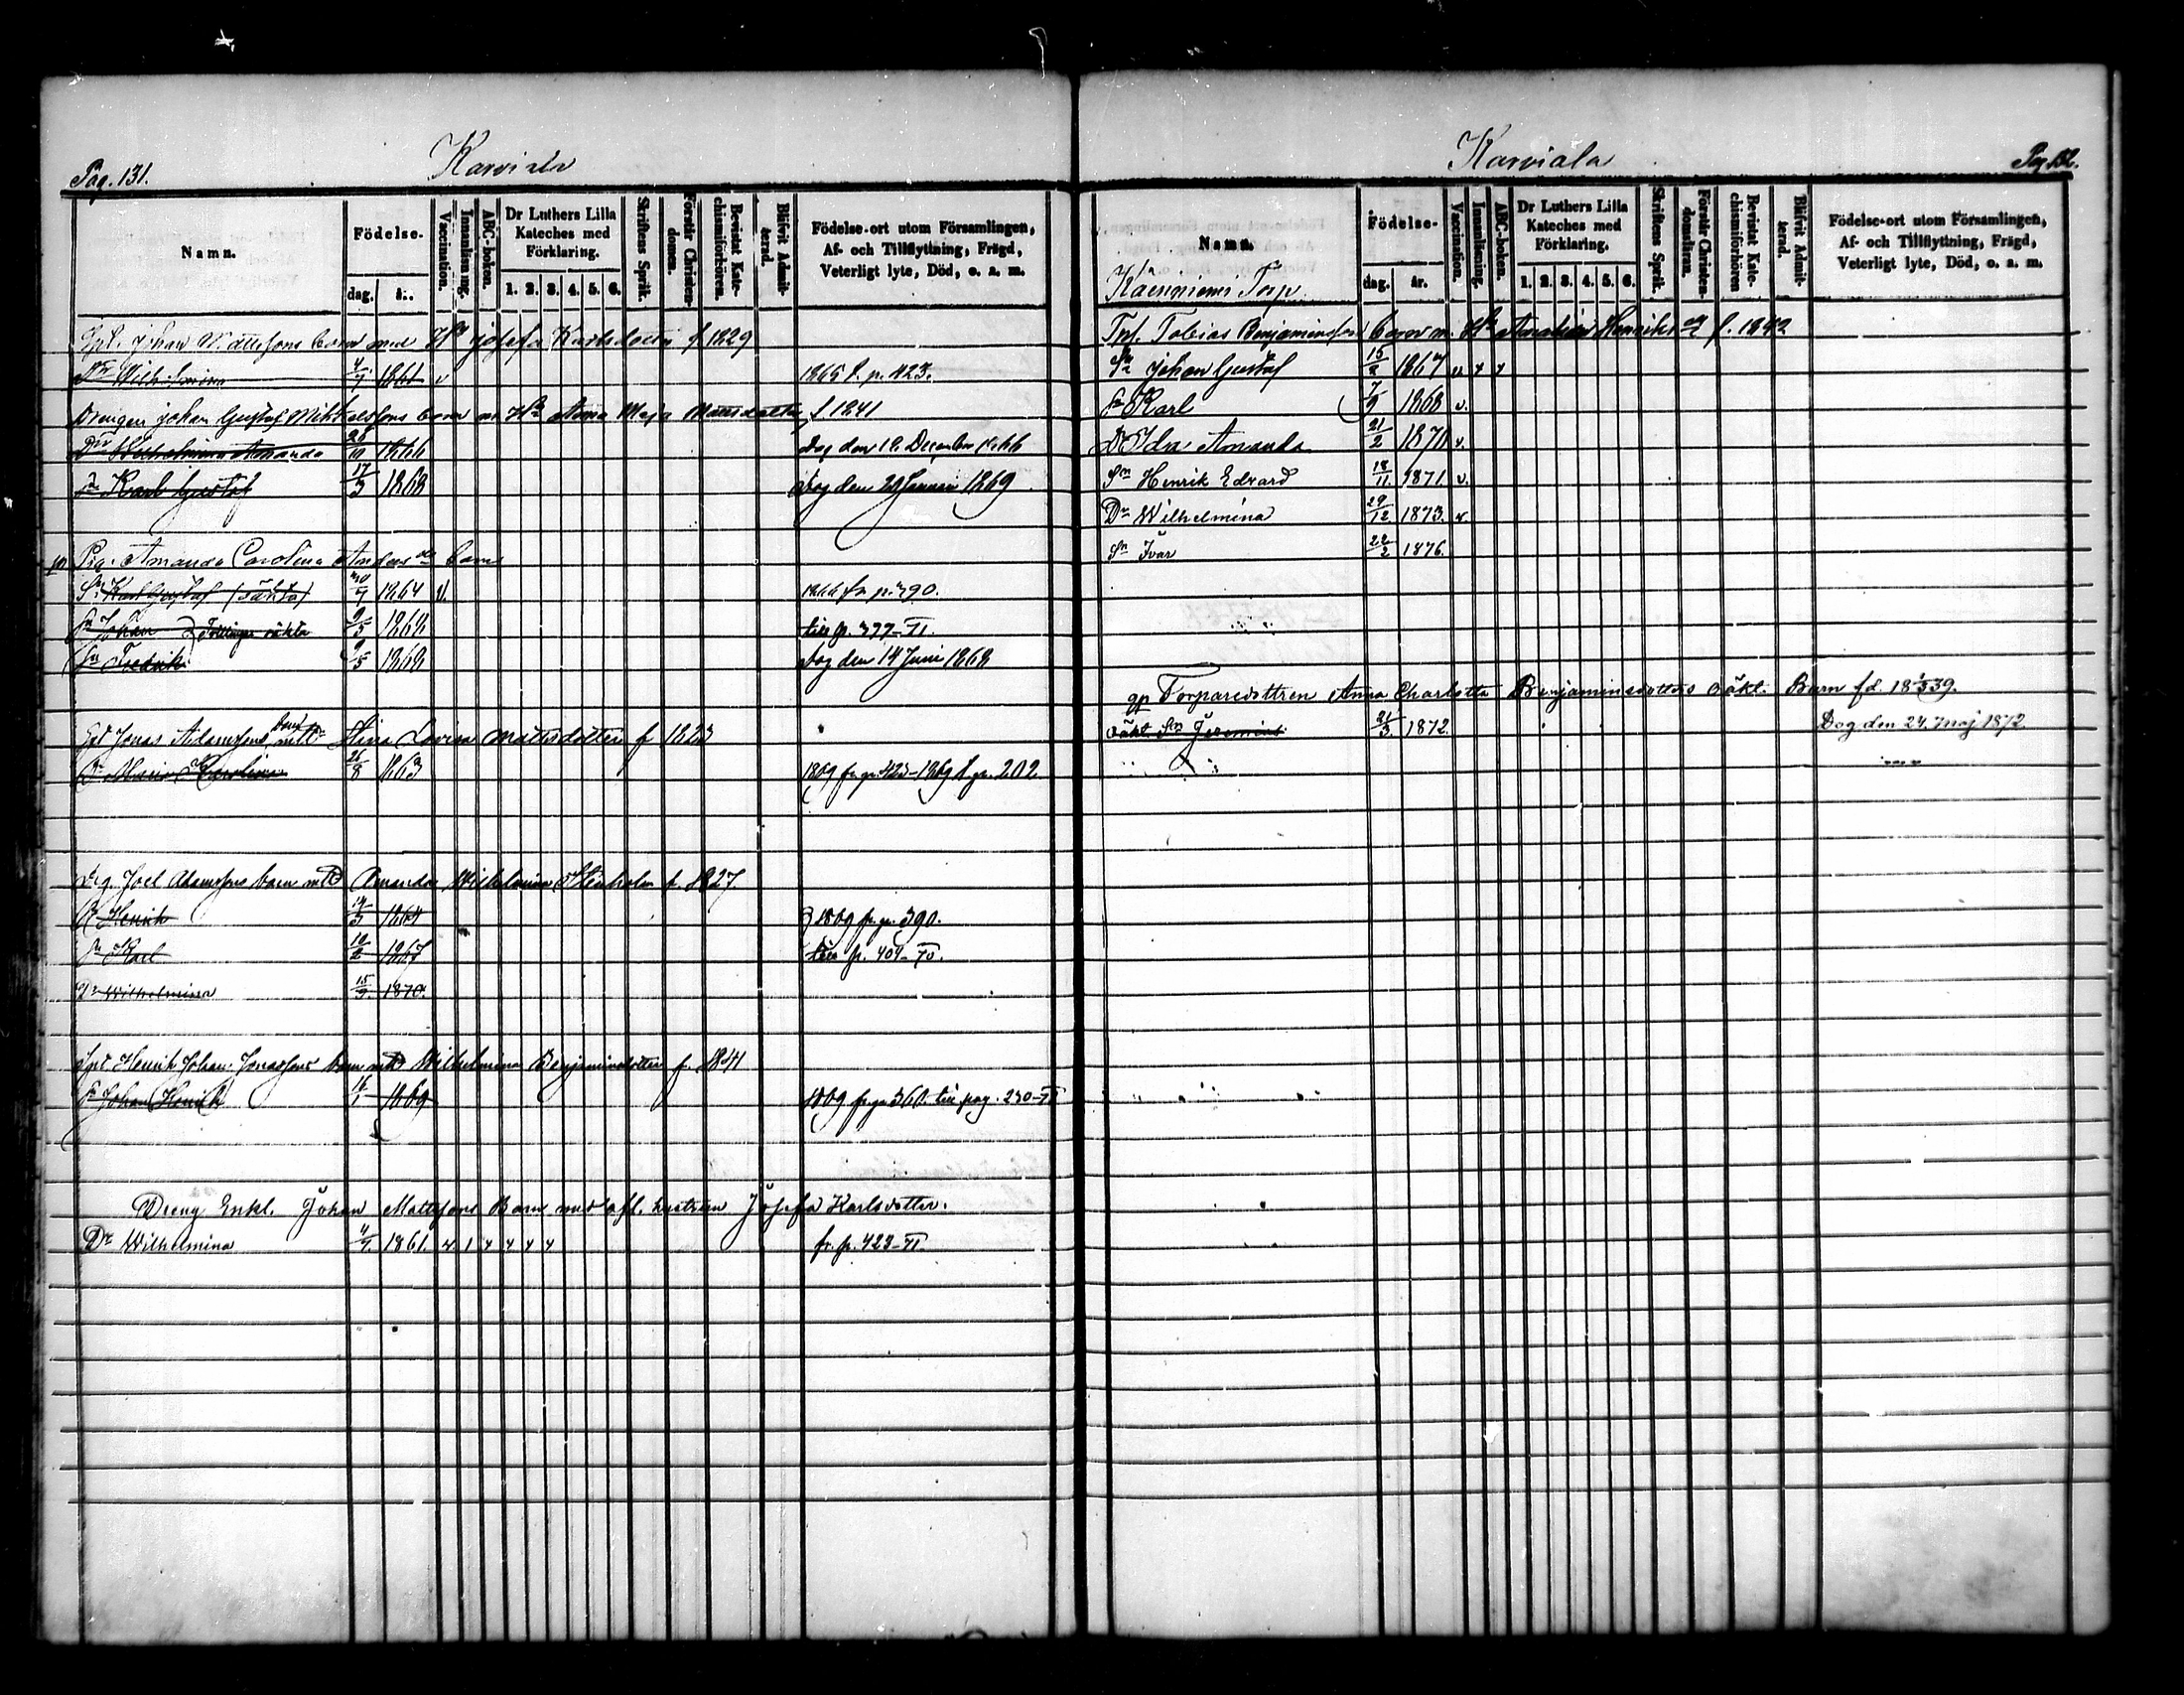 Pag. 131.
Karviala
Namn.
Födelse.
dag.
år.
Vaccination.
Innanläsning.
ABC-boken.
Dr Luthers Lilla Kateches med Förklaring.
1. 2. 3. 4. 5. 6.
Skriftens Språk.
Förstår Christendomen.
Bevistat Katechismiförhören.
Blifvit Admitterad.
Födelse-ort utom Församlingen, Af- och Tillflyttning, Frägd, Veterligt lyte, Död, o. a. m.
Johan Mattssons barn med Hu Josefa Karlsdotter f 1829
Dr Wilhelmina 4/7 1861 v 1865 t. p. 423.
Drengen Johan Gustaf Mikkelssons barn m. Hu Anna Maja Mattsdotter f 1841
Dr Wilhelmina Amanda 26/10 1866 dog den 16 December 1866
Sn Karl Gustaf 17/3 1868 dog den 29 Januari 1869
Pig. Amanda Carolina Anders dr barn
Sn Karl Gustaf (oäkta) 30/7 1864 v. 1866 fr p. 390.
Sn Johan } Tvillingar oäkta 9/5 1868 till p. 377-VI.
Sn Fredrik 9/5 1868 dog den 14 Juni 1868
Jonas Adamssons barn m Hu Stina Lovisa Mattsdotter f 1823
Dr Maria Karolina 26/8 1863 1869 fr p. 423-1869 t. p. 202
Drg. Joel Adamssons barn m Hu Amanda Wilhelmina Stenholm f. 1827
Sn Henrik 14/3 1864 1869 fr p. 390.
Sn Karl 10/2 1867 till p. 404-VI.
Dr Wilhelmina 15/3 1870.
Henrik Johan Jonassons barn m Hu Wilhelmina Benjaminsdotter f. 1841
Sn Johan Henrik 16/1 1869 1869 fr p. 368. till pag. 230-VI
Dreng Enkl. Johan Mattssons Barn med afl. hustrun Josefa Karlsdotter.
Dr Wilhelmina 4/7. 1861. fr. p. 423-VI.
Pag. 132.
Karviala
Namn.
Torp.
Födelse-
dag.
år.
Vaccination.
Innanläsning.
ABC-boken.
Dr Luthers Lilla Kateches med Förklaring.
1. 2. 3. 4. 5. 6.
Skriftens Språk.
Förstår Christendomsläran.
Bevistat Katechismiförhören
Blifvit Admitterad.
Födelse-ort utom Församlingen, Af- och Tillflyttning, Frägd, Veterligt lyte, Död, o. a. m.
Trp. Tobias Benjaminsson barn m. Hu Amalia Henriksdr f. 1842
Sn Johan Gustaf 15/2 1867 v
Sn Karl 7/9 1868 v.
Dr Ida Amanda 21/2 1870 v.
Sn Henrik Edvard 18/11 1871 v.
Dr Wilhelmina 29/12 1873. v.
Sn Ivar 22/2 1876.
Torparedottren Anna Charlotta Benjaminsdotters oäkt. Barn
oäkt. Sn Jeremias 21/3 1872. Dog den 24. maj 1872